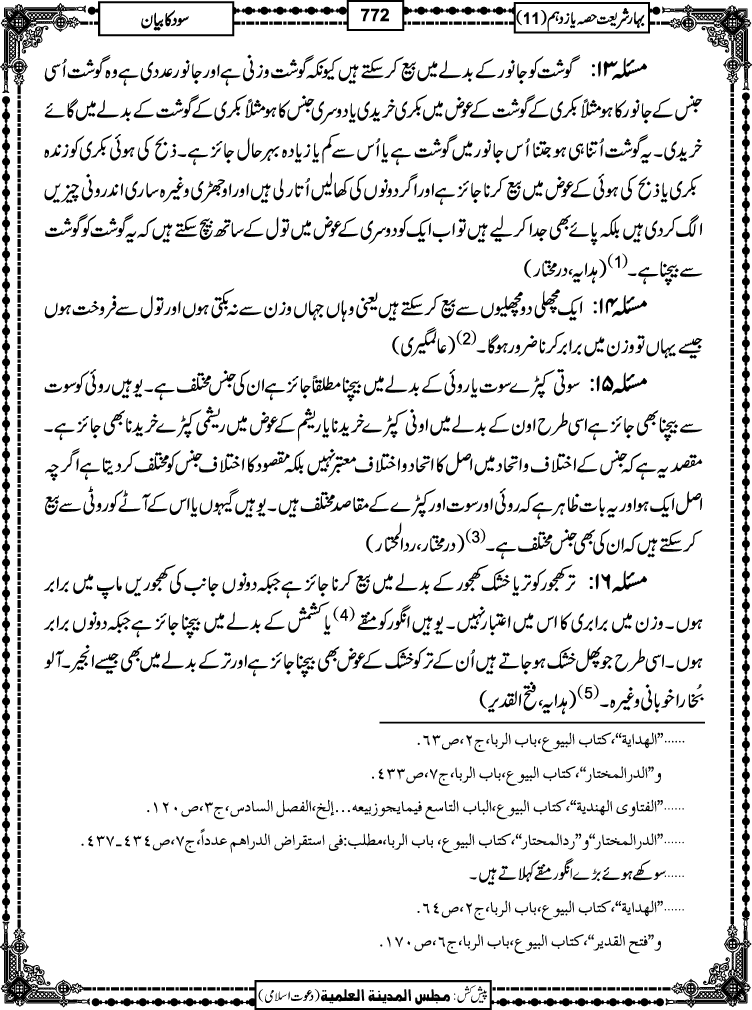 بہارِ شریعت حصہ یازدہم (11)
772
سود کا بیان
مسئلہ ۱۳: گوشت کو جانور کے بدلے میں بیع کر سکتے ہیں کیونکہ گوشت وزنی ہے اور جانور عددی ہے وہ گوشت اُسی
جنس کے جانور کا ہو مثلاً بکری کے گوشت کے عوض میں بکری خریدی یا دوسری جنس کا ہو مثلاً بکری کے گوشت کے بدلے میں گائے
خریدی۔ یہ گوشت اُتنا ہی ہو جتنا اُس جانور میں گوشت ہے یا اُس سے کم یا زیادہ بہرحال جائز ہے۔ ذبح کی ہوئی بکری کو زندہ
بکری یا ذبح کی ہوئی کے عوض میں بیع کرنا جائز ہے اور اگر دونوں کی کھالیں اُتار لی ہیں اور اوجھڑی وغیرہ ساری اندرونی چیزیں
الگ کردی ہیں بلکہ پائے بھی جدا کر لیے ہیں تو اب ایک کو دوسری کے عوض میں تول کے ساتھ بیچ سکتے ہیں کہ یہ گوشت کو گوشت
سے بیچنا ہے۔(1) (ہدایہ، درمختار)
مسئلہ ۱۴: ایک مچھلی دو مچھلیوں سے بیع کر سکتے ہیں یعنی وہاں جہاں وزن سے نہ بکتی ہوں اور تول سے فروخت ہوں
جیسے یہاں تو وزن میں برابر کرنا ضرور ہوگا۔(2) (عالمگیری)
مسئلہ ۱۵: سوتی کپڑے سوت یا روئی کے بدلے میں بیچنا مطلقاً جائز ہے ان کی جنس مختلف ہے۔ یوہیں روئی کو سوت
سے بیچنا بھی جائز ہے اسی طرح اون کے بدلے میں اونی کپڑے خریدنا یا ریشم کے عوض میں ریشمی کپڑے خریدنا بھی جائز ہے۔
مقصد یہ ہے کہ جنس کے اختلاف و اتحاد میں اصل کا اتحاد و اختلاف معتبر نہیں بلکہ مقصود کا اختلاف جنس کو مختلف کردیتا ہے اگرچہ
اصل ایک ہو اور یہ بات ظاہر ہے کہ روئی اور سوت اور کپڑے کے مقاصد مختلف ہیں۔ یوہیں گیہوں یا اس کے آٹے کو روٹی سے بیع
کر سکتے ہیں کہ ان کی بھی جنس مختلف ہے۔(3) (درمختار، ردالمحتار)
مسئلہ ۱۶: تر کھجور کو تر یا خشک کھجور کے بدلے میں بیع کرنا جائز ہے جبکہ دونوں جانب کی کھجوریں ماپ میں برابر
ہوں۔ وزن میں برابری کا اس میں اعتبار نہیں۔ یوہیں انگور کو منقے(4) یا کشمش کے بدلے میں بیچنا جائز ہے جبکہ دونوں برابر
ہوں۔ اسی طرح جو پھل خشک ہو جاتے ہیں اُن کے تر کو خشک کے عوض بھی بیچنا جائز ہے اور تر کے بدلے میں بھی جیسے انجیر۔ آلو
بُخارا خوبانی وغیرہ۔(5) (ہدایہ، فتح القدیر)
......"الهداية"، كتاب البيوع، باب الربا، ج٢، ص٦٣.
و"الدرالمختار"، كتاب البيوع، باب الربا، ج٧، ص٤٣٣.
......"الفتاوى الهندية"، كتاب البيوع، الباب التاسع فيما يجوز بيعه...إلخ، الفصل السادس، ج٣، ص١٢٠.
......"الدرالمختار" و"ردالمحتار"، كتاب البيوع، باب الربا، مطلب: فى استقراض الدراهم عدداً، ج٧، ص٤٣٤ـ٤٣٧.
......سوکھے ہوئے بڑے انگور منقے کہلاتے ہیں۔
......"الهداية"، كتاب البيوع، باب الربا، ج٢، ص٦٤.
و"فتح القدير"، كتاب البيوع، باب الربا، ج٦، ص١٧٠.
پیش کش: مجلس المدینۃ العلمیۃ (دعوت اسلامی)